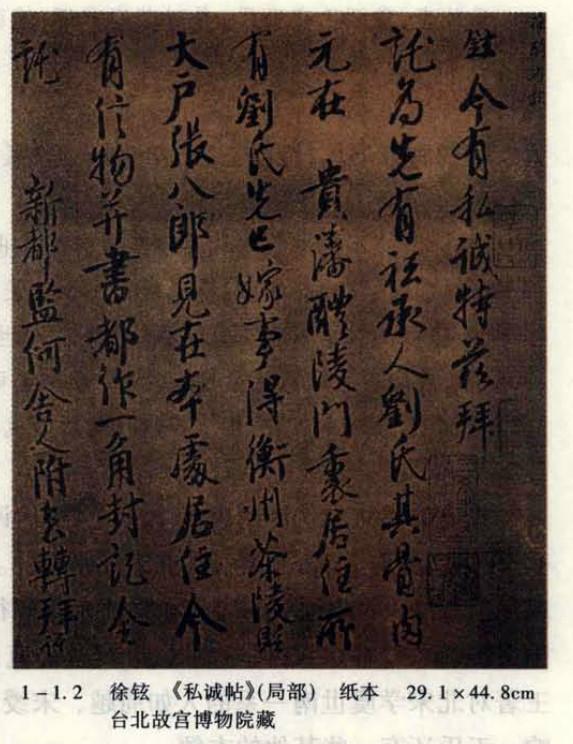 鉉今有私誠特茲拜
託為先有祗承人劉氏其骨肉
元在 貴藩醴陵門裏居住所
有劉氏先已嫁事得衡州茶陵縣
大戶張八郎見在本處居住今
有信物并書都作一角封記全
託 新都監何舍人附去轉拜託
1-1.2 徐铉 《私诚帖》(局部) 纸本 29.1×44.8cm
台北故宫博物院藏